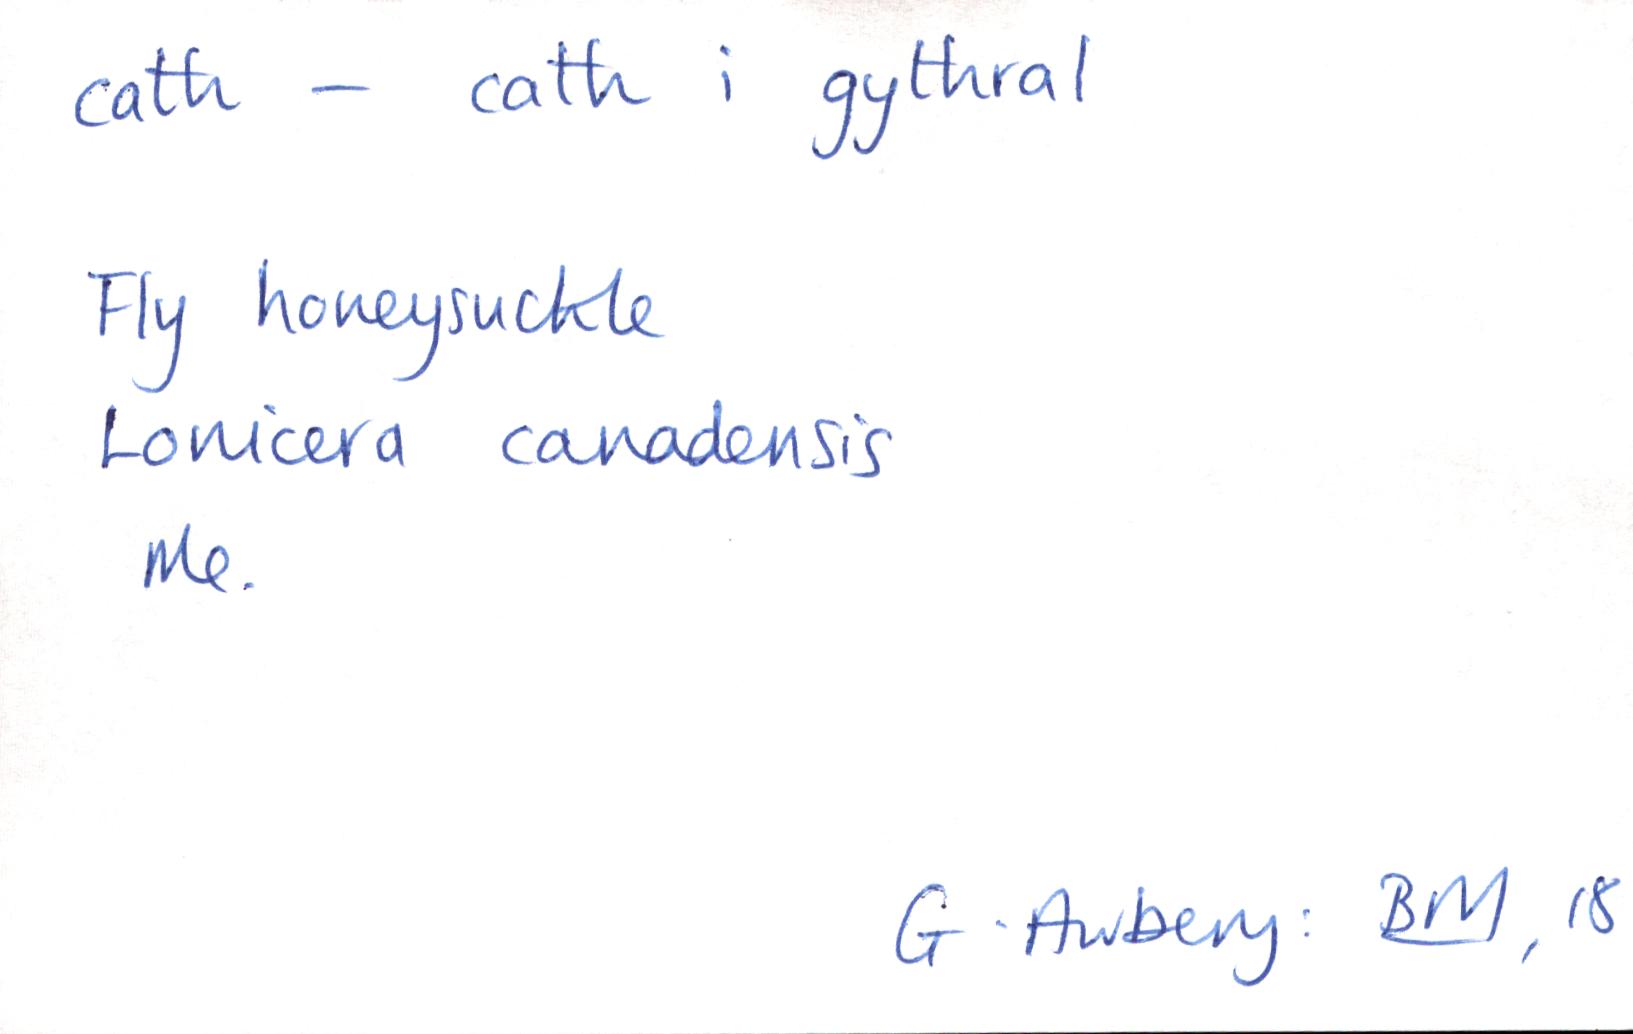 cath - cath i gythral
Fly honeysuckle
Lonicera canadensis
Me.
G. Awbery: BM, 18